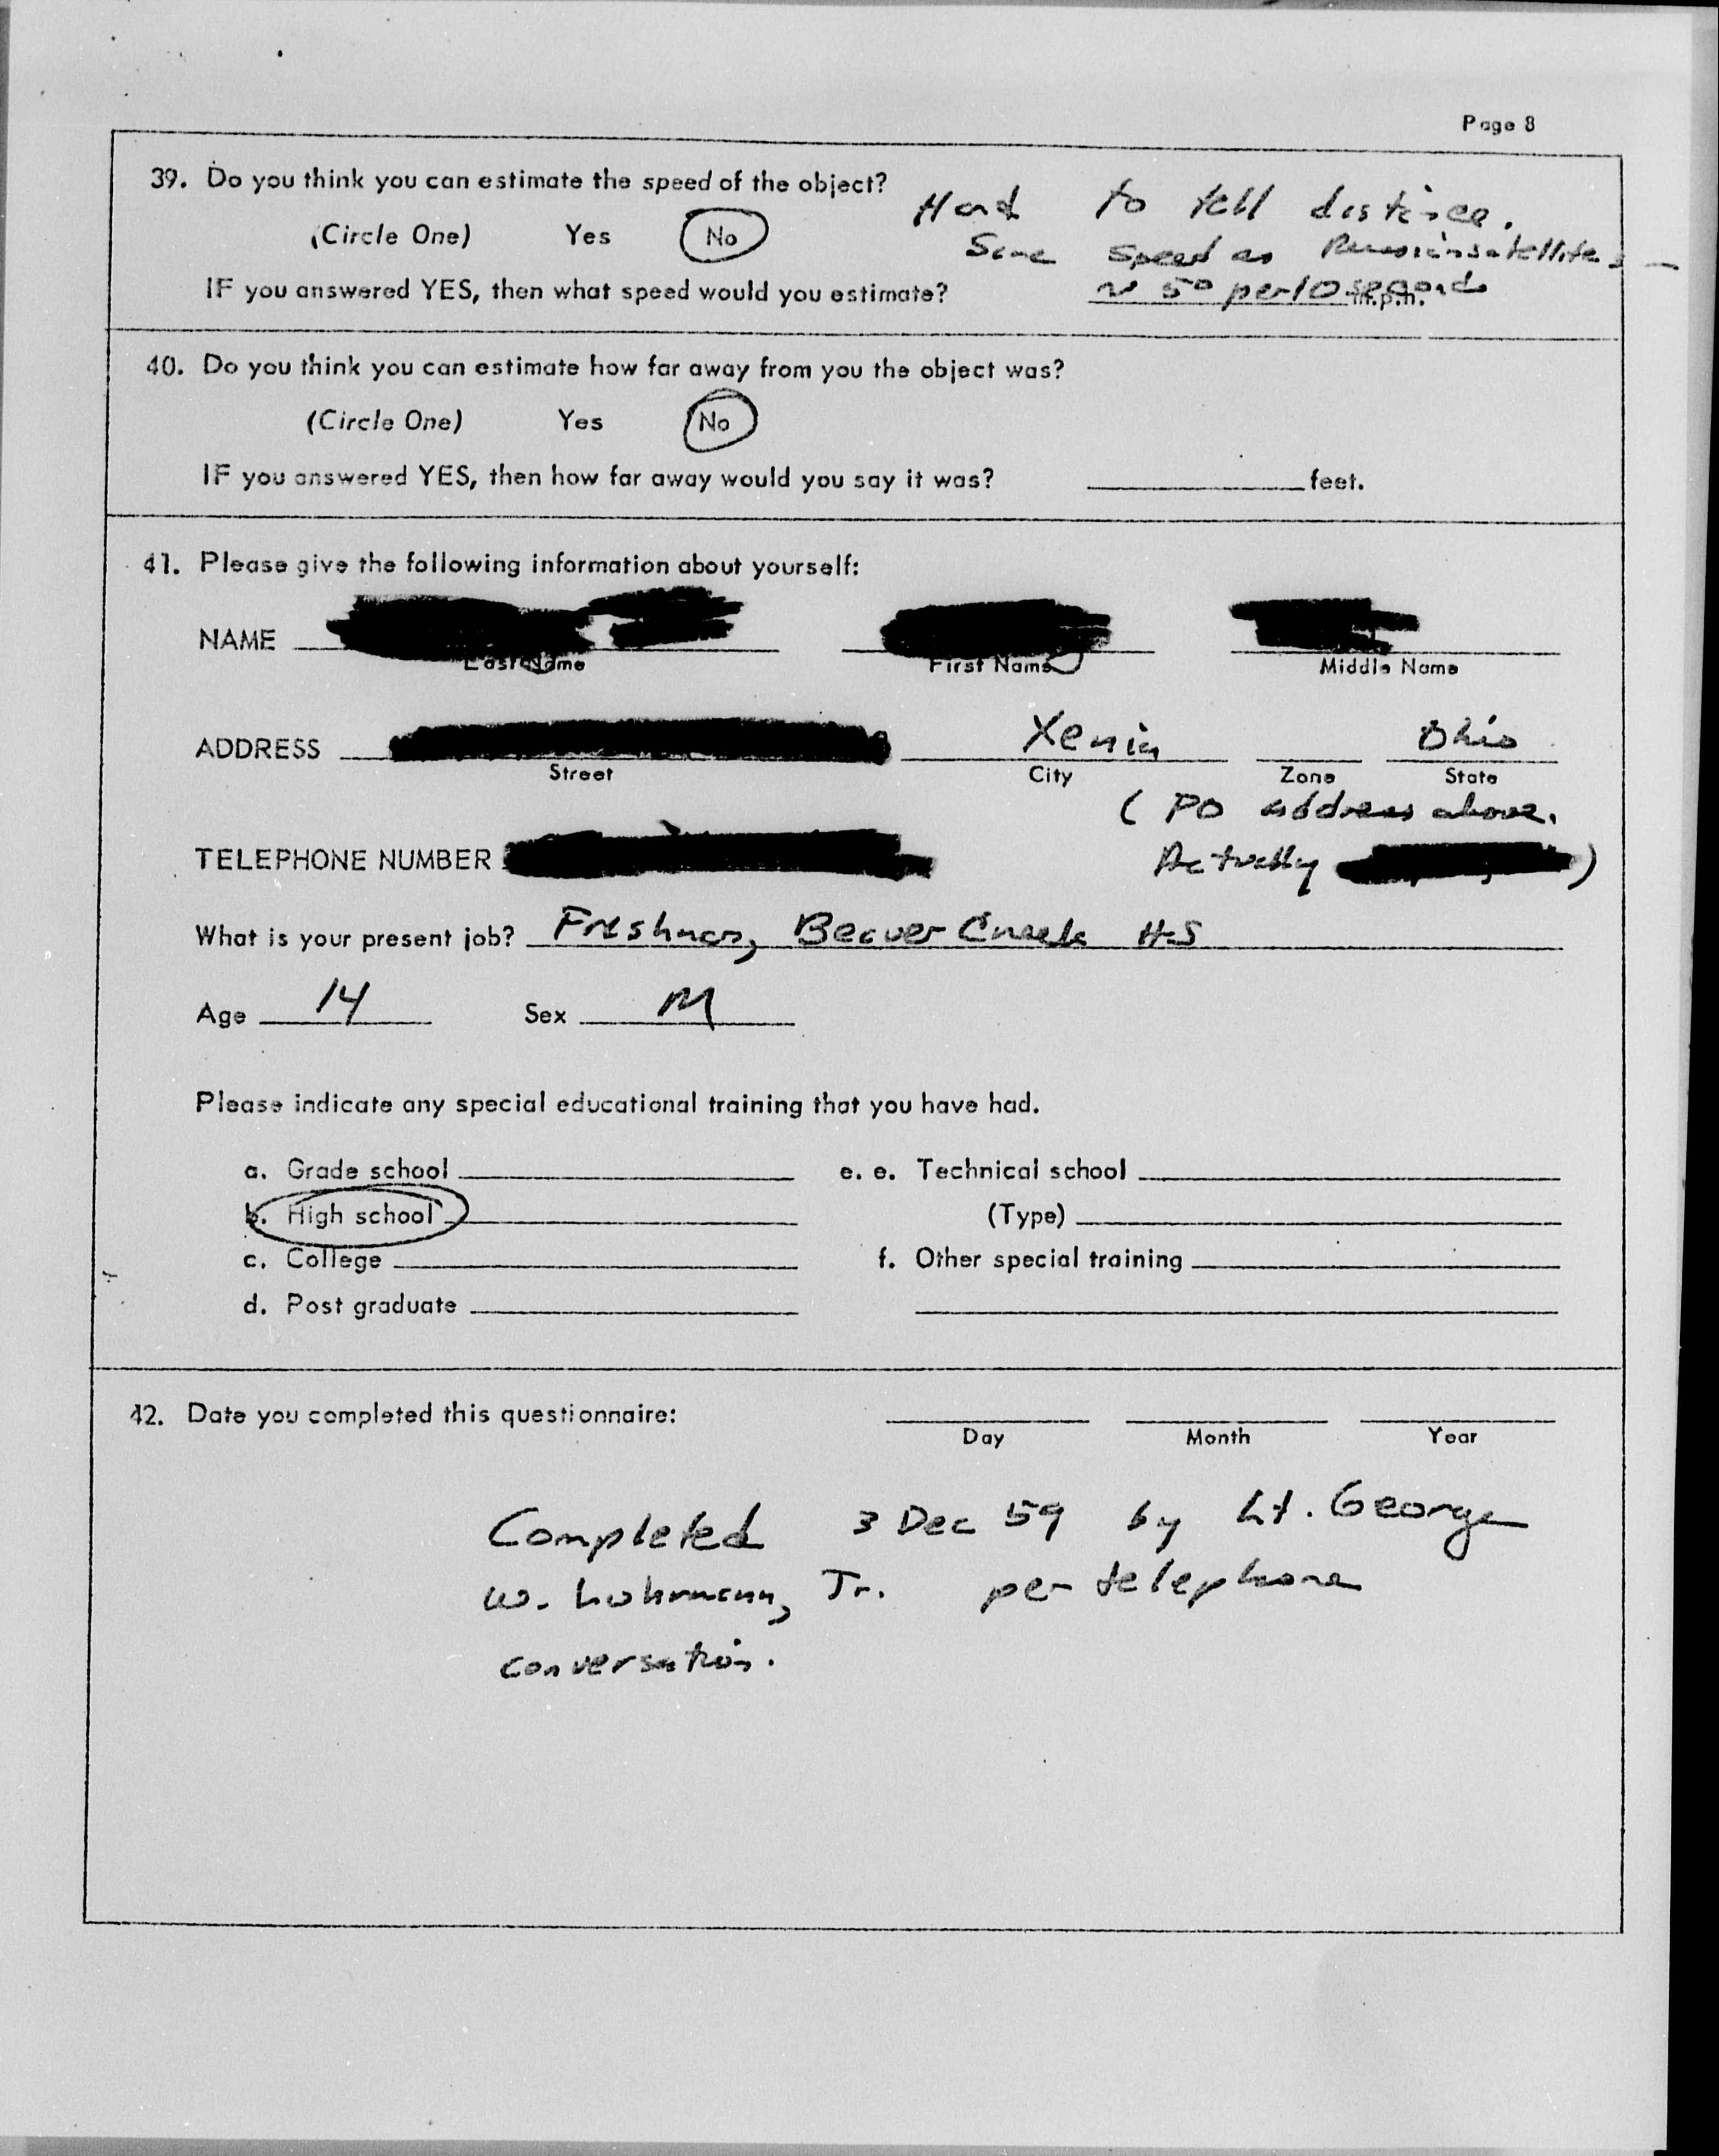 Page 8
39. Do you think you can estimate the speed of the object?
Hard to tell distance.
(Circle One) Yes No
Same speed as Russian satellite
IF you answered YES, then what speed would you estimate? ~ 5° per 10 seconds m.p.h.
40. Do you think you can estimate how far away from you the object was?
(Circle One) Yes No
IF you answered YES, then how far away would you say it was? feet.
41. Please give the following information about yourself:
NAME
Last Name First Name Middle Name
ADDRESS Xenia Ohio
Street City Zone State
( PO address above.
TELEPHONE NUMBER Actually )
What is your present job? Freshman, Beaver Creek H-S
Age 14 Sex M
Please indicate any special educational training that you have had.
a. Grade school e. e. Technical school
b. High school (Type)
c. College f. Other special training
d. Post graduate
42. Date you completed this questionnaire:
Day Month Year
Completed 3 Dec 59 by Lt. George
W. Lohrmann, Jr. per telephone
conversation.